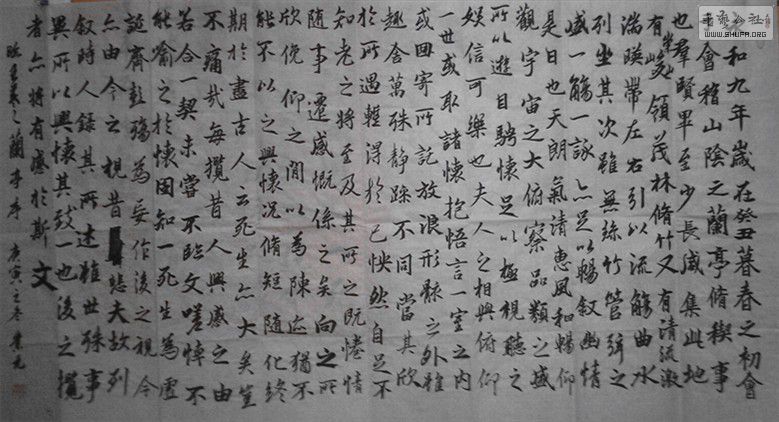 书艺公社
WWW.SHUFA.ORG
和九年歲在癸丑暮春之初會
會稽山陰之蘭亭脩稧事
也羣賢畢至少長咸集此地
有崇山峻領茂林脩竹又有清流激
湍暎帶左右引以流觴曲水
列坐其次雖無絲竹管弦之
盛一觴一詠亦足以暢敘幽情
是日也天朗氣清惠風和暢仰
觀宇宙之大俯察品類之盛
所以遊目騁懷足以極視聽之
娛信可樂也夫人之相與俯仰
一世或取諸懷抱悟言一室之內
或因寄所託放浪形骸之外雖
趣舍萬殊靜躁不同當其欣
於所遇輕得於己怏然自足不
知老之將至及其所之既惓情
隨事遷感慨係之矣向之所
欣俛仰之間以為陳迹猶不
能不以之興懷況脩短隨化終
期於盡古人云死生亦大矣豈
不痛哉每攬昔人興感之由
若合一契未嘗不臨文嗟悼不
能喻之於懷固知一死生為虛
誕齊彭殤為妄作後之視今
亦由今之視昔悲夫故列
敘時人錄其所述雖世殊事
異所以興懷其致一也後之攬
者亦將有感於斯文
臨王羲之蘭亭序 庚寅之冬